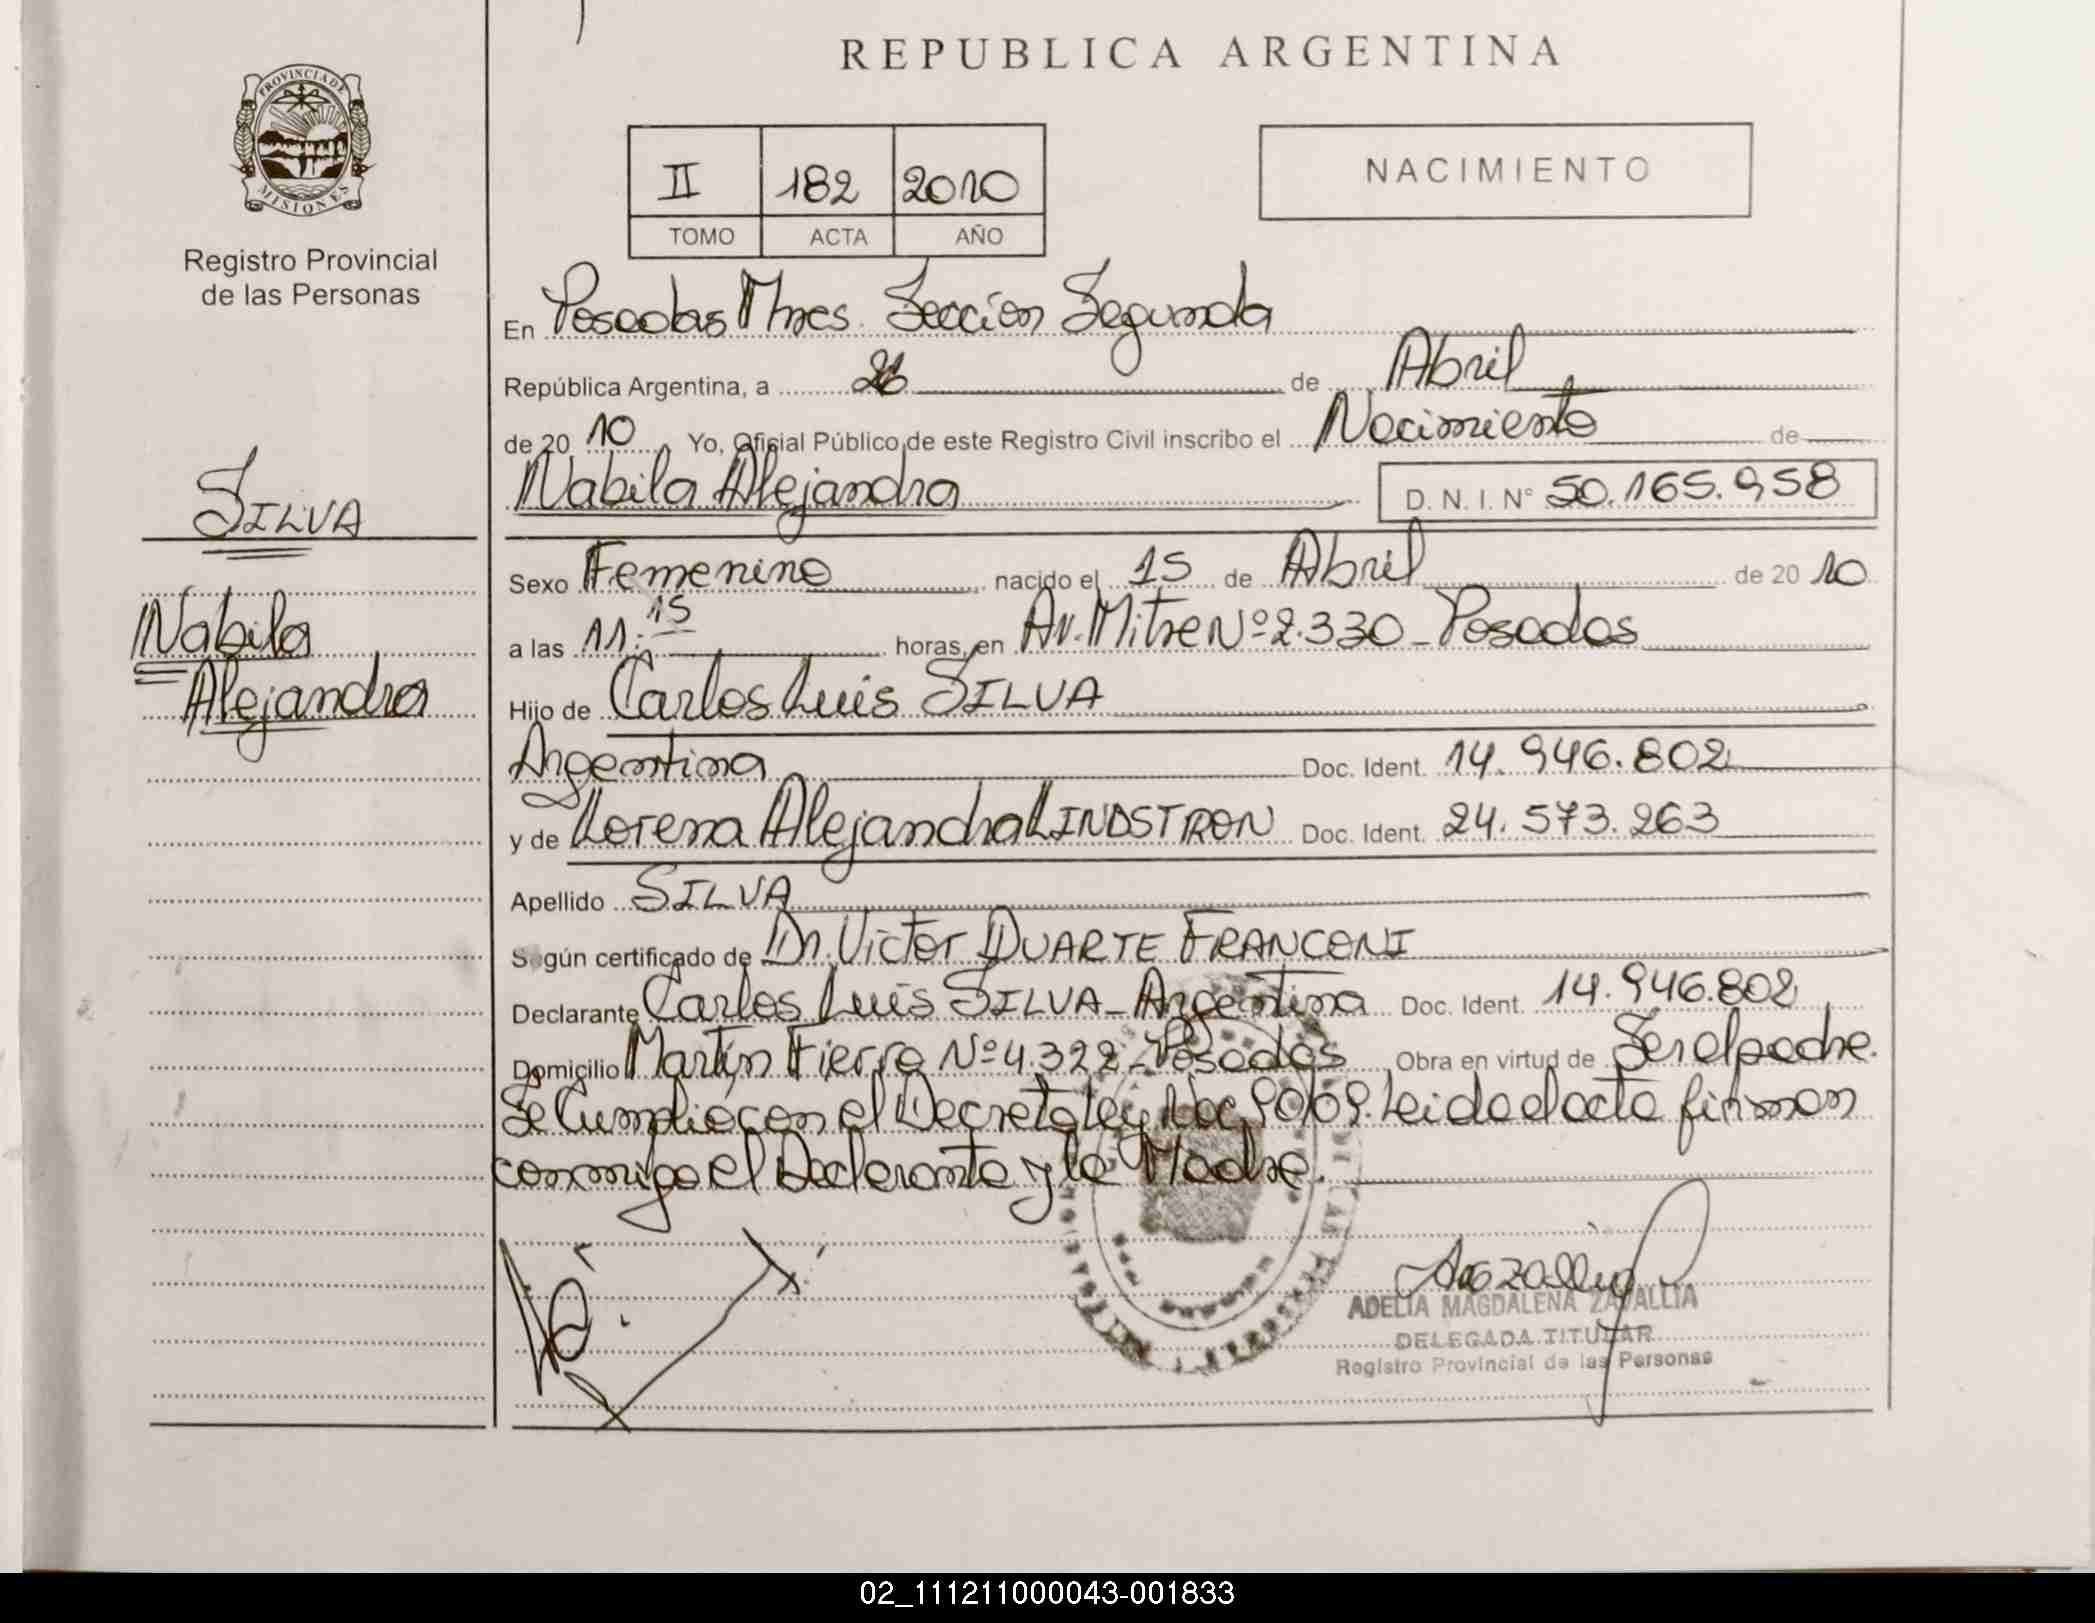 REPUBLICA ARGENTINA
PROVINCIA DE
MISIONES
Registro Provincial
de las Personas
II 182 2010
TOMO ACTA AÑO
NACIMIENTO
En Posadas Mnes. Sección Segunda
República Argentina, a de Abril
de 20 10 Yo, Oficial Público de este Registro Civil inscribo el Nacimiento de
Nabila Alejandra D. N. I. Nº 50.165.958
SILVA
Nabila
Alejandra
Sexo Femenino nacido el 15 de Abril de 20 10
a las 11:15 horas, en Av. Mitre Nº 2.330 - Posadas
Hijo de Carlos Luis SILVA
Argentina Doc. Ident. 14.946.802
y de Lorena Alejandra LINDSTRON Doc. Ident. 24.573.263
Apellido SILVA
Según certificado de Dr. Victor DUARTE FRANCONI
Declarante Carlos Luis SILVA - Argentina Doc. Ident. 14.946.802
Domicilio Martín Fierro Nº 4.322 - Posadas Obra en virtud de Ser el padre.
Se Cumplió con el Decreto ley Nac 90/09. Leida el acta firman
conmigo el Declarante y la Madre.
ADELIA MAGDALENA ZAVALLIA
DELEGADA TITULAR
Registro Provincial de las Personas
02_111211000043-001833